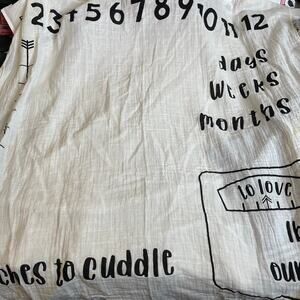 2 3 4 5 6 7 8 9 10 11 12
days
weeks
months
to love
lb
ou
ches to cuddle